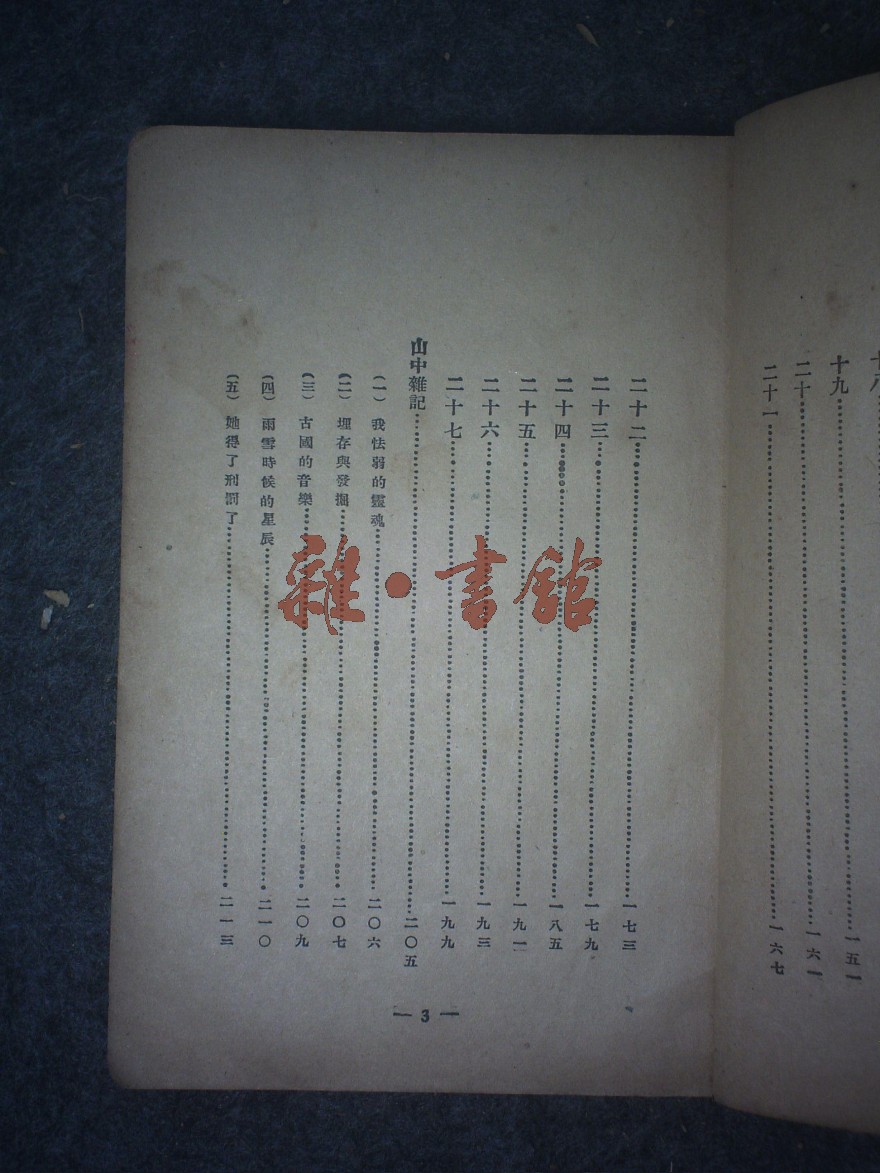 十八
十九 一五一
二十 一六一
二十一 一六七
二十二 一七三
二十三 一七九
二十四 一八五
二十五 一九一
二十六 一九三
二十七 一九九
山中雜記 二〇五
(一) 我怯弱的靈魂 二〇六
(二) 埋存與發掘 二〇七
(三) 古國的音樂 二〇九
(四) 雨雪時候的星辰 二一〇
(五) 她得了刑罰了 二一三
— 3 —
雜·書館